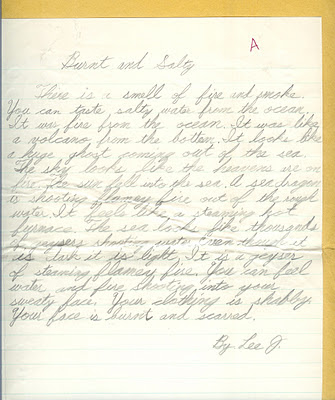 A
Burnt and Salty
There is a smell of fire and smoke.
You can taste salty water from the ocean.
It was fire from the ocean. It was like
a volcano from the bottom. It looks like
a huge ghost coming out of the sea.
The sky looks like the heavens are on
fire. The sun fell into the sea. A sea dragon
is shooting flamey fire out of the rough
water. It feels like a steaming hot
furnace. The sea looks like thousands
of geysers shooting water. Even though it
is dark it is light. It is a geyser
of steaming flamey fire. You can feel
water and fire shooting into your
sweaty face. Your clothing is shabby.
Your face is burnt and scarred.
By Lee J.